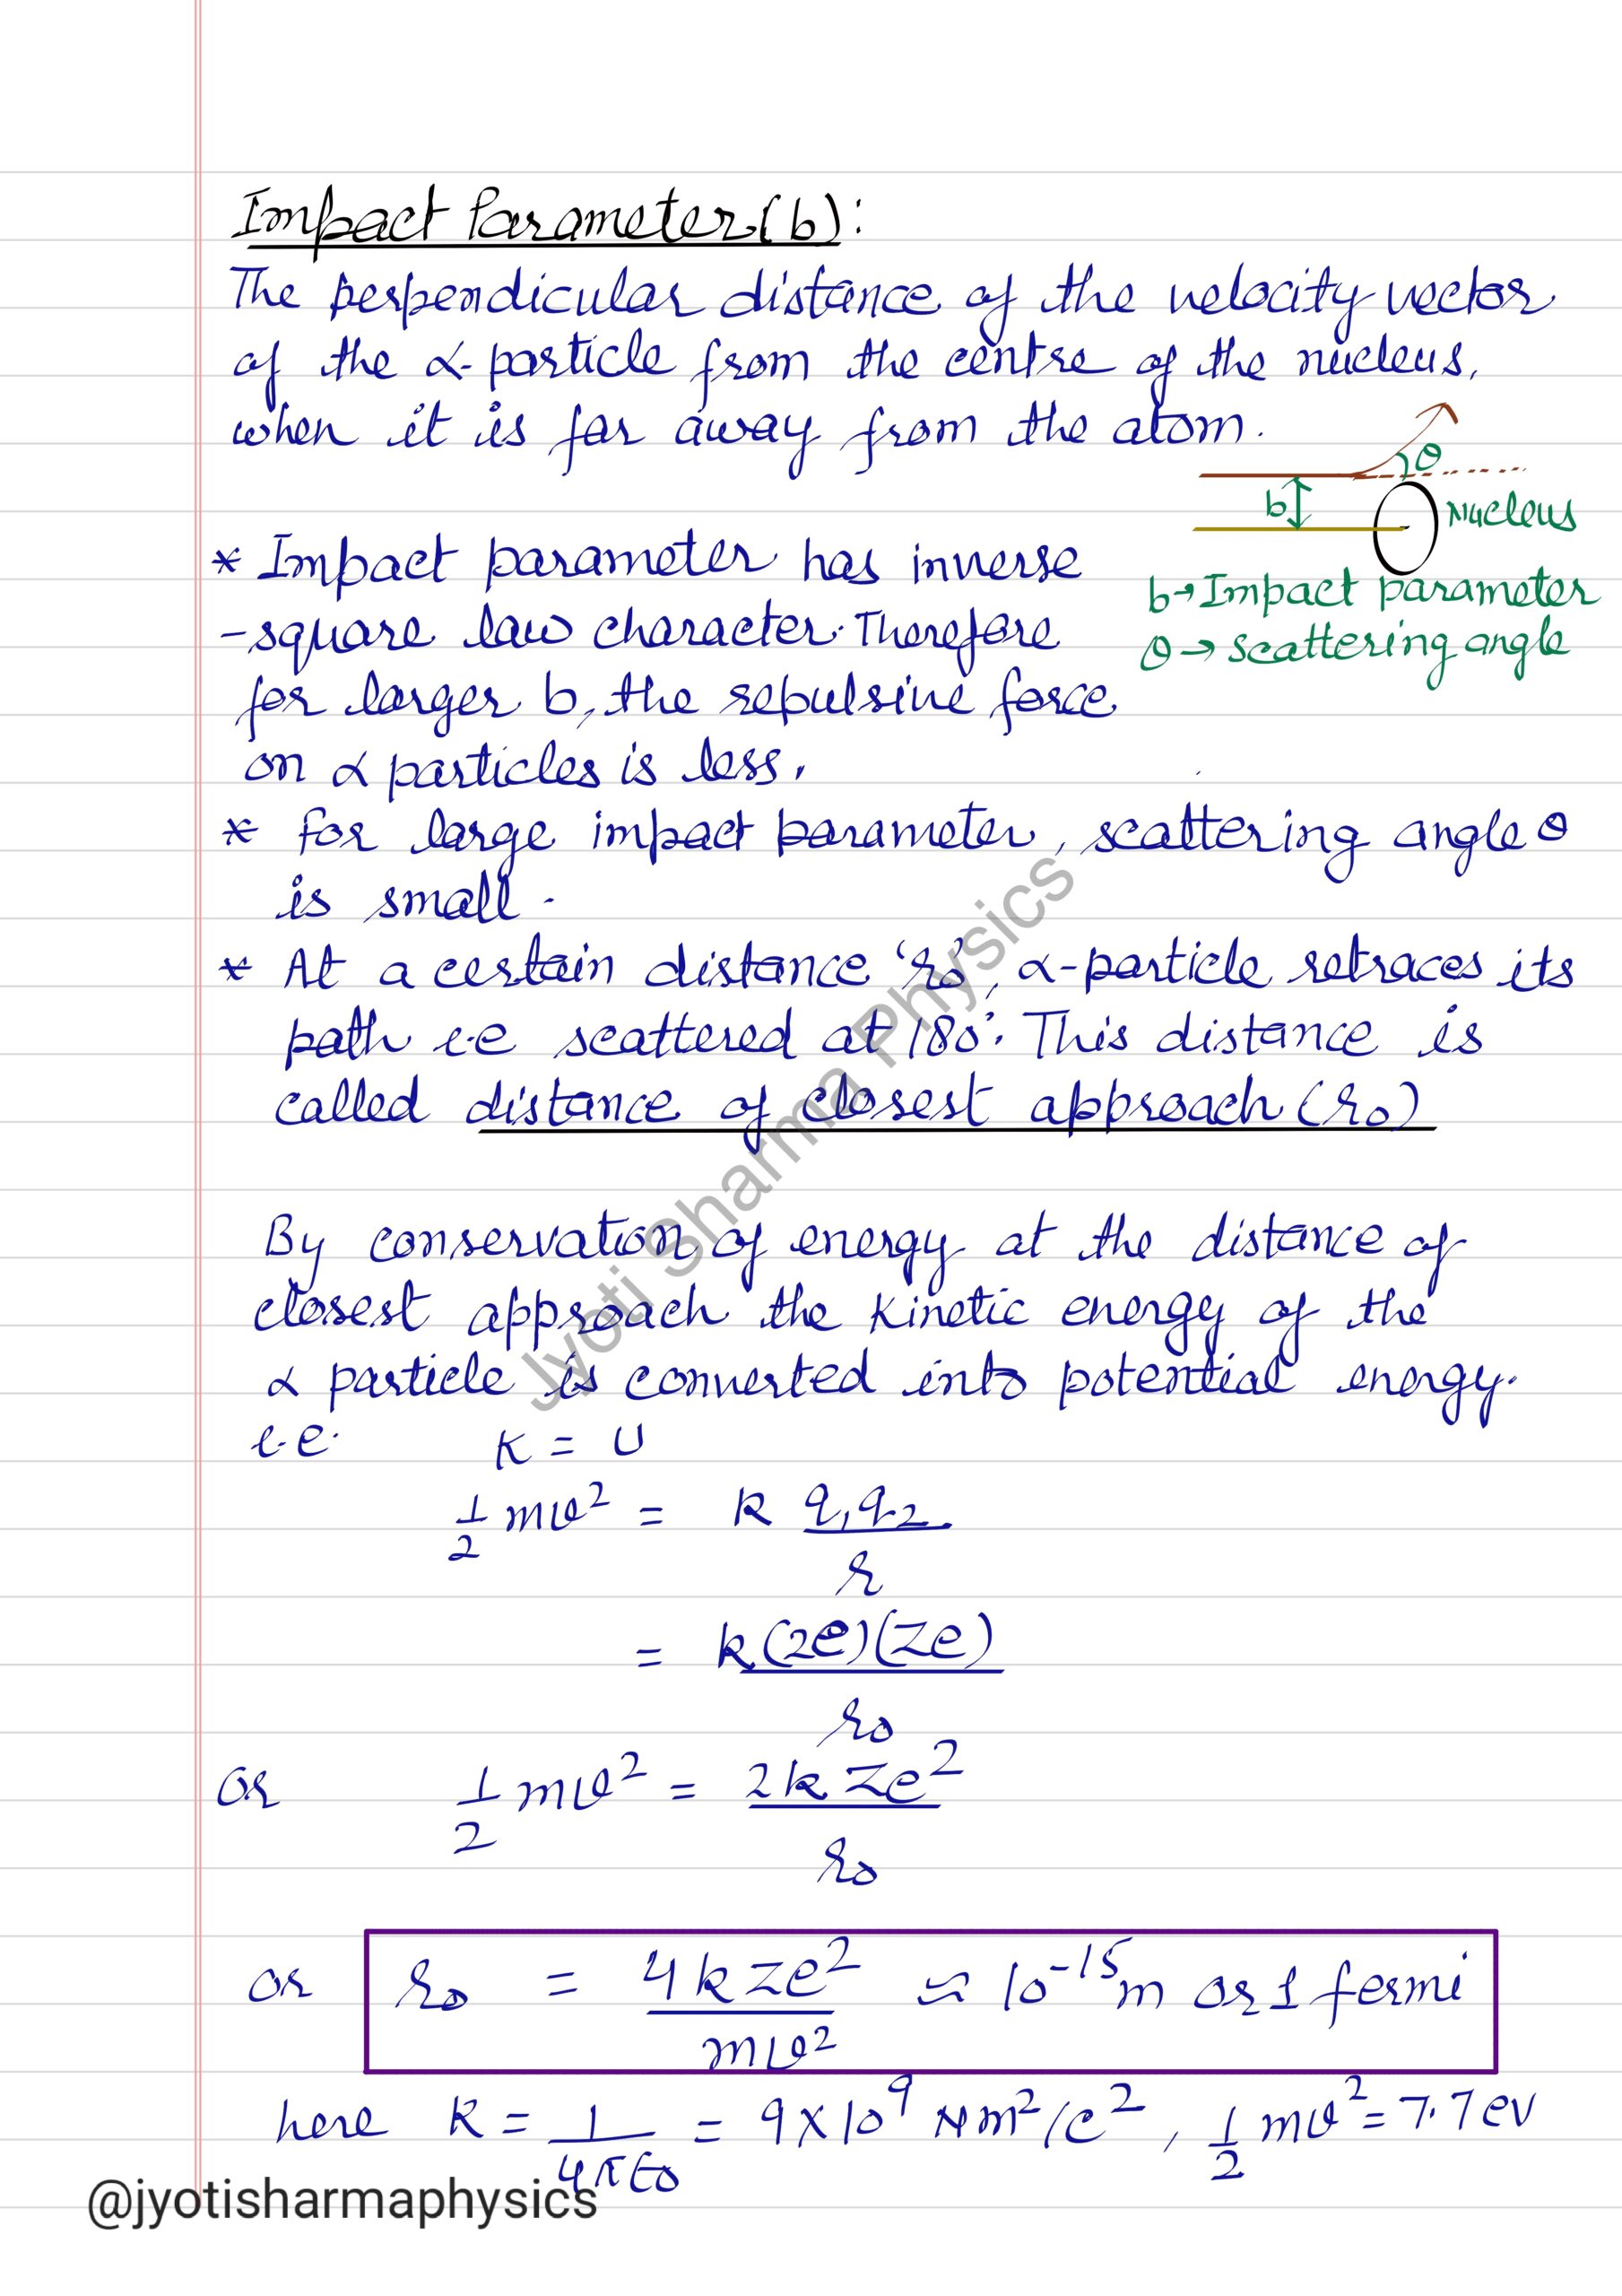 Impact Parameter(b):
The perpendicular distance of the velocity vector
of the α-particle from the centre of the nucleus,
when it is far away from the atom.
θ
b
Nucleus
b→Impact parameter
θ→scattering angle
* Impact parameter has inverse
-square law character. Therefore
for larger b, the repulsive force
on α particles is less.
* for large impact parameter, scattering angle θ
is small.
* At a certain distance 'r₀', α-particle retraces its
path i.e scattered at 180°. This distance is
called distance of closest approach (r₀)
By conservation of energy at the distance of
closest approach the kinetic energy of the
α particle is converted into potential energy.
i.e. K = U
1/2 mv² = k q₁q₂/r
= k(2e)(Ze)/r₀
or 1/2 mv² = 2kZe²/r₀
or r₀ = 4kZe²/mv² ≈ 10⁻¹⁵m or 1 fermi
here K = 1/4πε₀ = 9×10⁹ Nm²/C², 1/2 mv² = 7.7 ev
Jyoti Sharma Physics
@jyotisharmaphysics